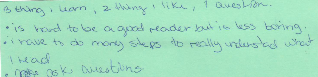 3 thing, learn, 2 thing i like, 1 question.
• is hard to be a good reader but is less boring.
• i have to do many steps to really understad what
I read
• ask questions